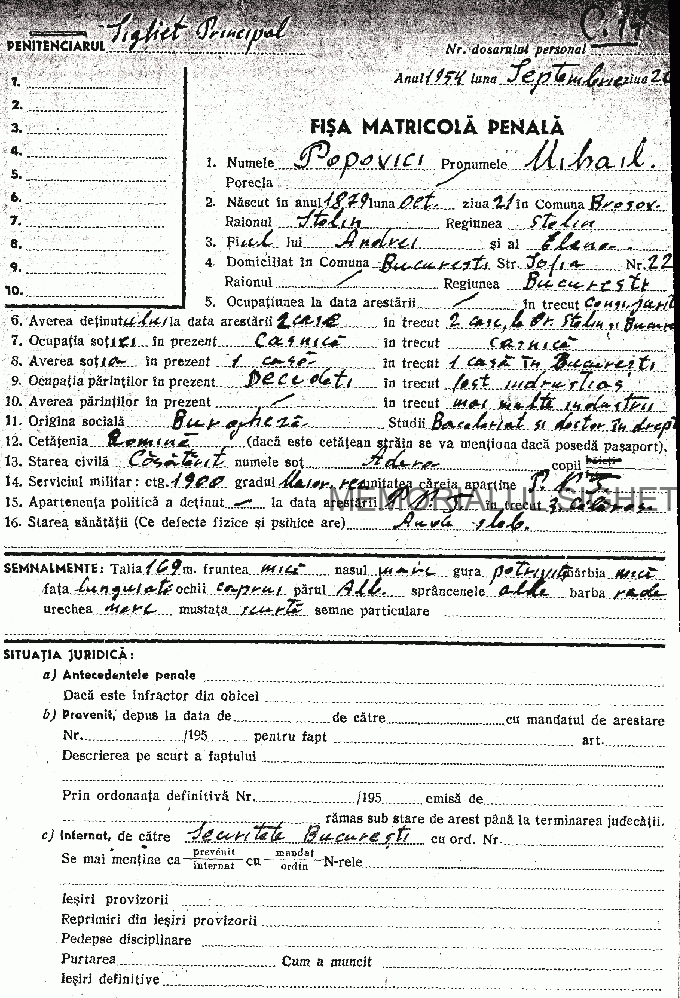 PENITENCIARUL Sighet Principal
C. 14
Nr. dosarului personal
Anul 1954 luna Septembrie ziua 2
1.
2.
3.
4.
5.
6.
7.
8.
9.
10.
FIŞA MATRICOLĂ PENALĂ
1. Numele Popovici Pronumele Mihail.
Porecla
2. Născut în anul 1879 luna Oct. ziua 21 în Comuna Braşov.
Raionul Stalin Regiunea Stalin
3. Fiul lui Andrei şi al Elena.
4. Domiciliat în Comuna Bucureşti Str. Sofia Nr. 22
Raionul Regiunea Bucureşti
5. Ocupaţiunea la data arestării în trecut
6. Averea deţinutului la data arestării 2 case în trecut 2 case, la Or. Stalin şi
7. Ocupaţia soţiei în prezent Casnică în trecut casnică
8. Averea soţia în prezent 1 casă în trecut 1 casă în Bucureşti
9. Ocupaţia părinţilor în prezent Decedaţi în trecut fost industriaş
10. Averea părinţilor în prezent în trecut mai multe industrii
11. Origina socială Burgheză Studii Bacalariat şi doctor în drept
12. Cetăţenia Romină (dacă este cetăţean străin se va menţiona dacă posedă paşaport),
13. Starea civilă Căsătorit numele soţ copil băieţi
14. Serviciul militar: ctg. 1900 gradul Maior. unitatea căreia aparţine
15. Apartenenţa politică a deţinut — la data arestării în trecut
16. Starea sănătăţii (Ce defecte fizice şi psihice are) slab.
MEMORIALUL SIGHET
SEMNALMENTE: Talia 169 m. fruntea mică nasul mare gura potrivită bărbia mică
faţa lunguiată ochii caprui părul Alb. sprâncenele albe barba rade
urechea mare mustaţa scurtă semne particulare
SITUAŢIA JURIDICĂ:
a) Antecedentele penale
Dacă este infractor din obicei
b) Provenit, depus la data de de către cu mandatul de arestare
Nr. /195 pentru fapt art.
Descrierea pe scurt a faptului
Prin ordonanţa definitivă Nr. /195 emisă de
rămas sub stare de arest până la terminarea judecăţii.
c) Internat, de către Securitate Bucureşti cu ord. Nr.
Se mai menţine ca prevenit internat cu mandat ordin N-rele
Ieşiri provizorii
Reprimiri din ieşiri provizorii
Pedepse disciplinare
Purtarea Cum a muncit
Ieşiri definitive